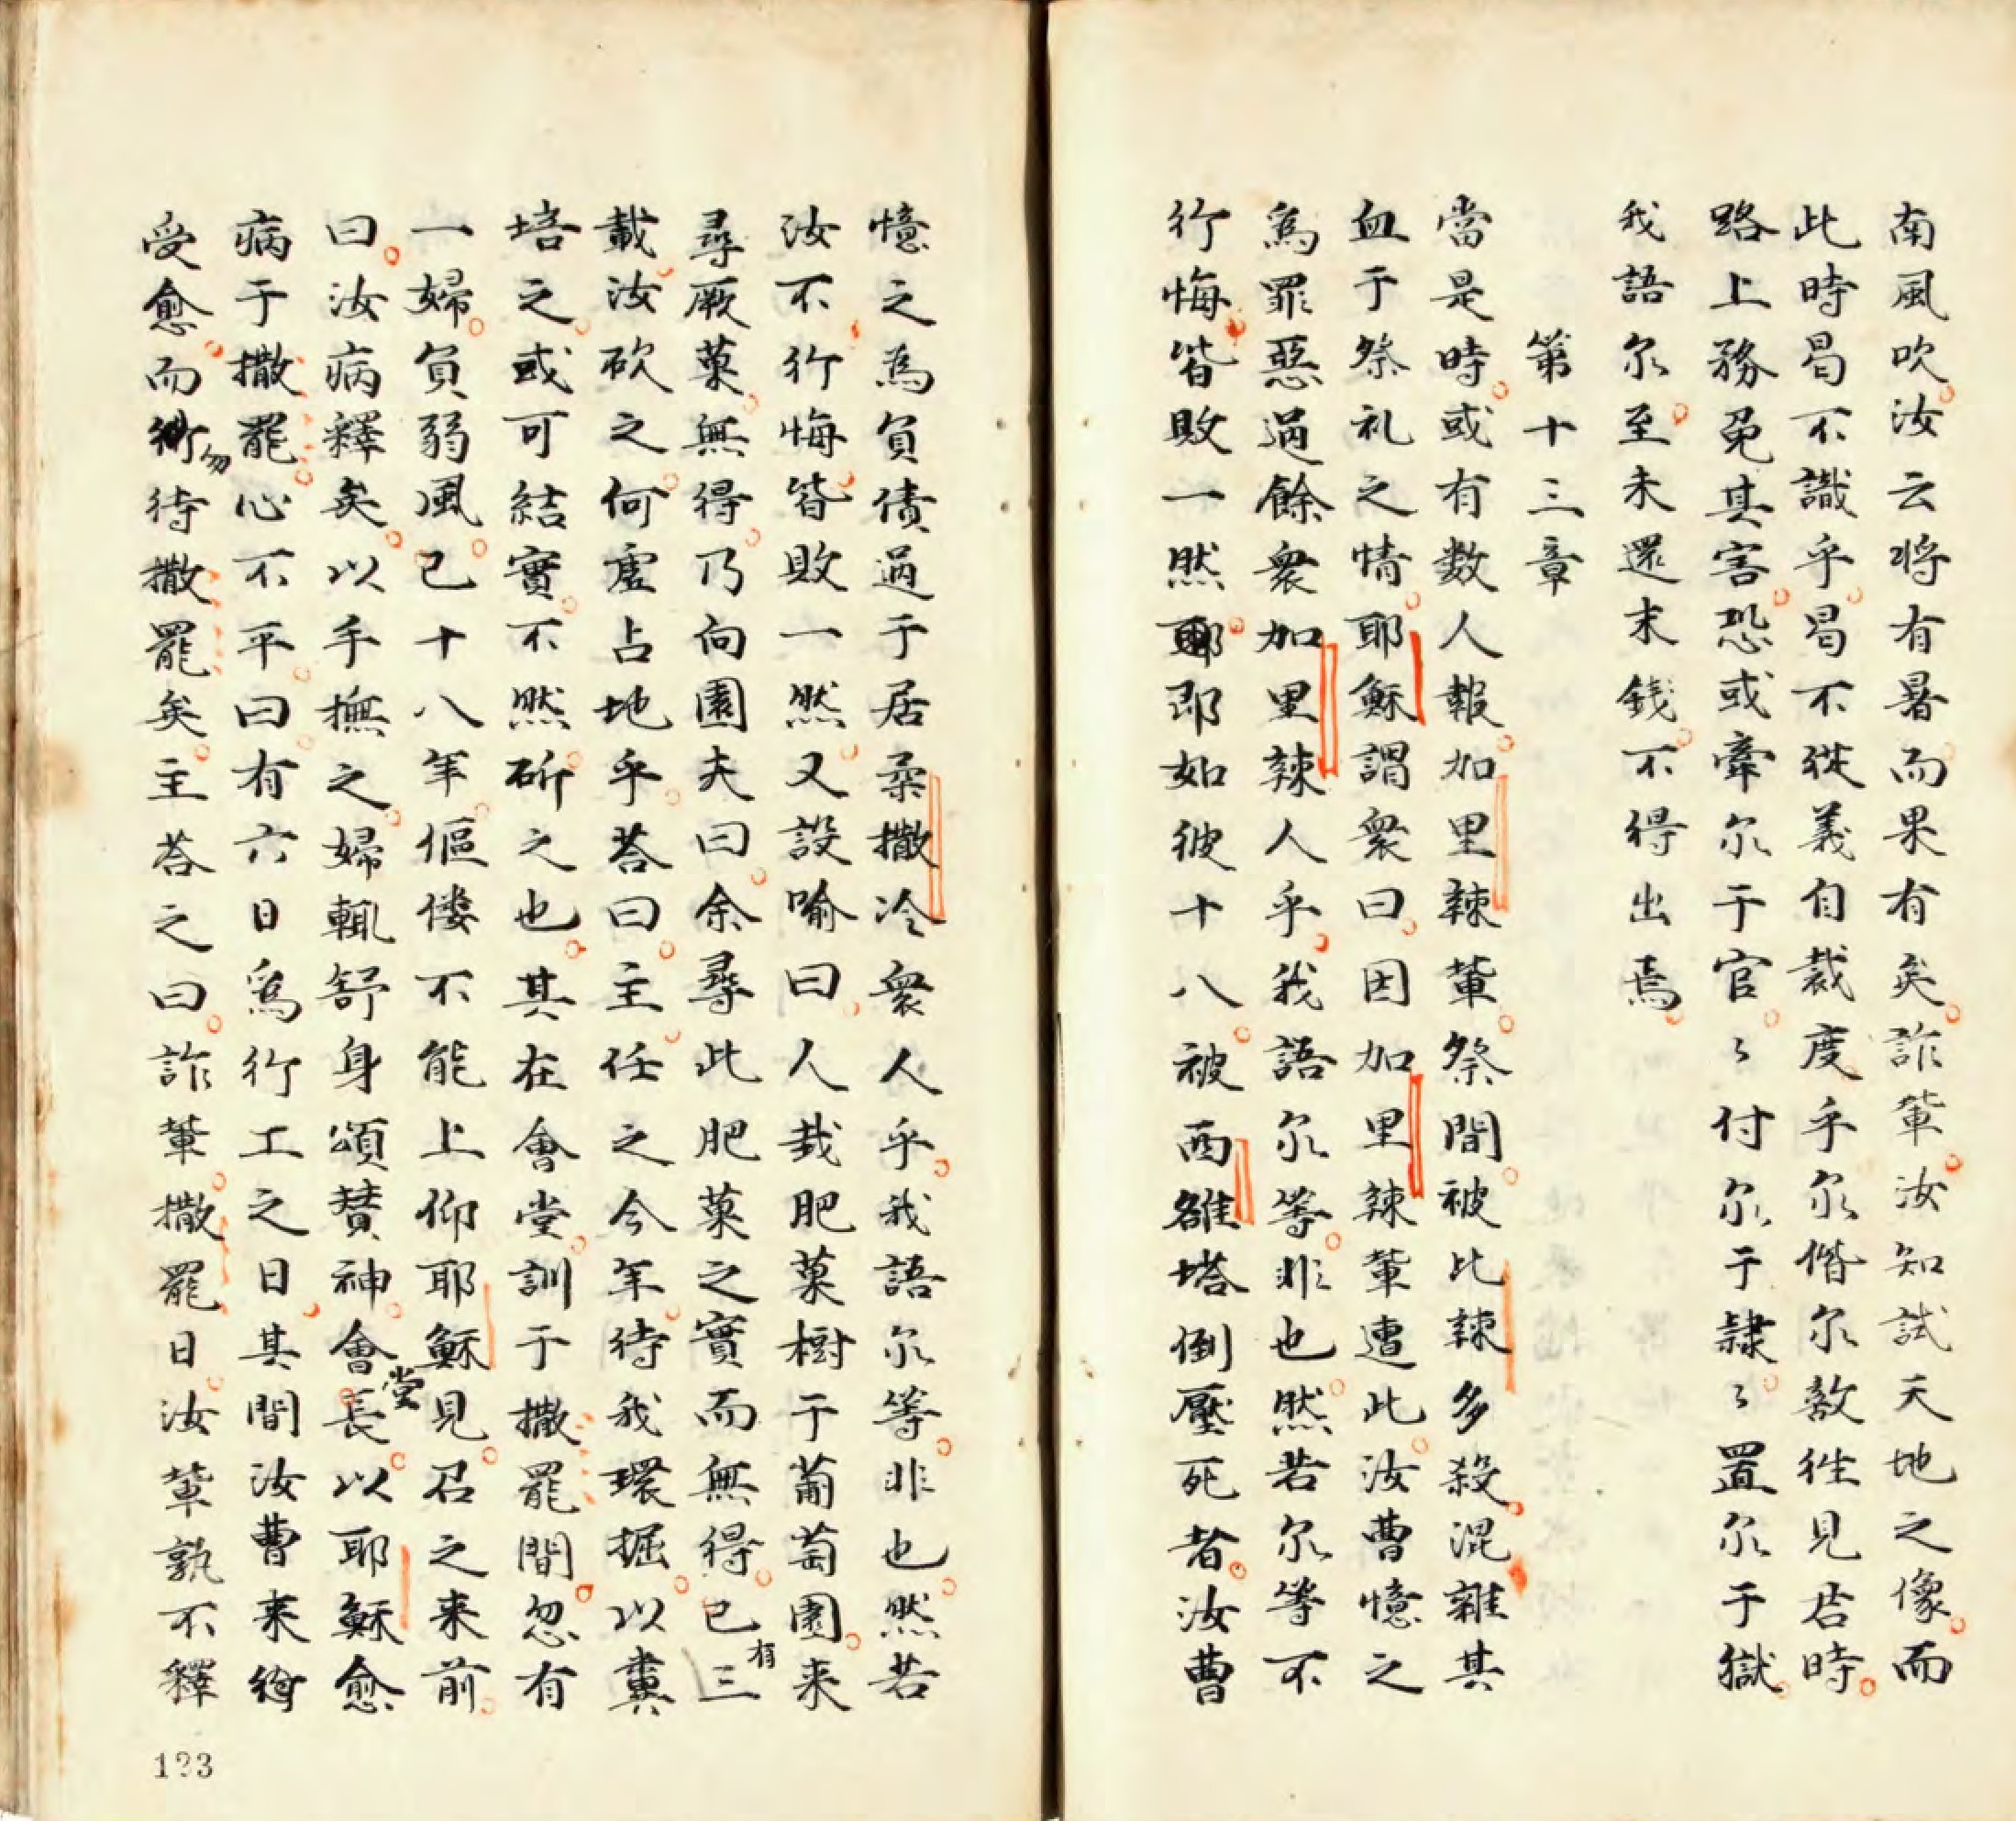 南風吹汝云将有暑而果有矣詐軰汝知試天地之像而
此時曷不識乎曷不從義自裁度乎尔偕尔敵徃見君時
路上務免其害恐或牽尔于官〻付尔于隷〻置尔于獄
我語尔至未還末錢不得出焉
第十三章
當是時或有数人報加里辣軰祭間被比辣多殺混雜其
血于祭礼之情耶穌謂衆曰因加里辣軰遭此汝曹憶之
為罪惡過餘衆加里辣人乎我語尔等非也然若尔等不
行悔皆敗一然即如彼十八被西雒塔倒壓死者汝曹
憶之為負債過于居柔撒冷衆人乎我語尔等非也然若
汝不行悔皆敗一然又設喻曰人栽肥菓樹于葡萄園来
尋厥菓無得乃向園夫曰余尋此肥菓之實而無得已有三
載汝砍之何虚占地乎荅曰主任之今年待我環掘以糞
培之或可結實不然斫之也其在會堂訓于撒罷間忽有
一婦負弱風已十八年傴僂不能上仰耶穌見召之来前
曰汝病釋矣以手撫之婦輒舒身頌賛神會堂長以耶穌愈
病于撒罷心不平曰有六日為行工之日其間汝曹来
受愈而勿待撒罷矣主荅之曰詐軰撒罷日汝軰孰不釋
123